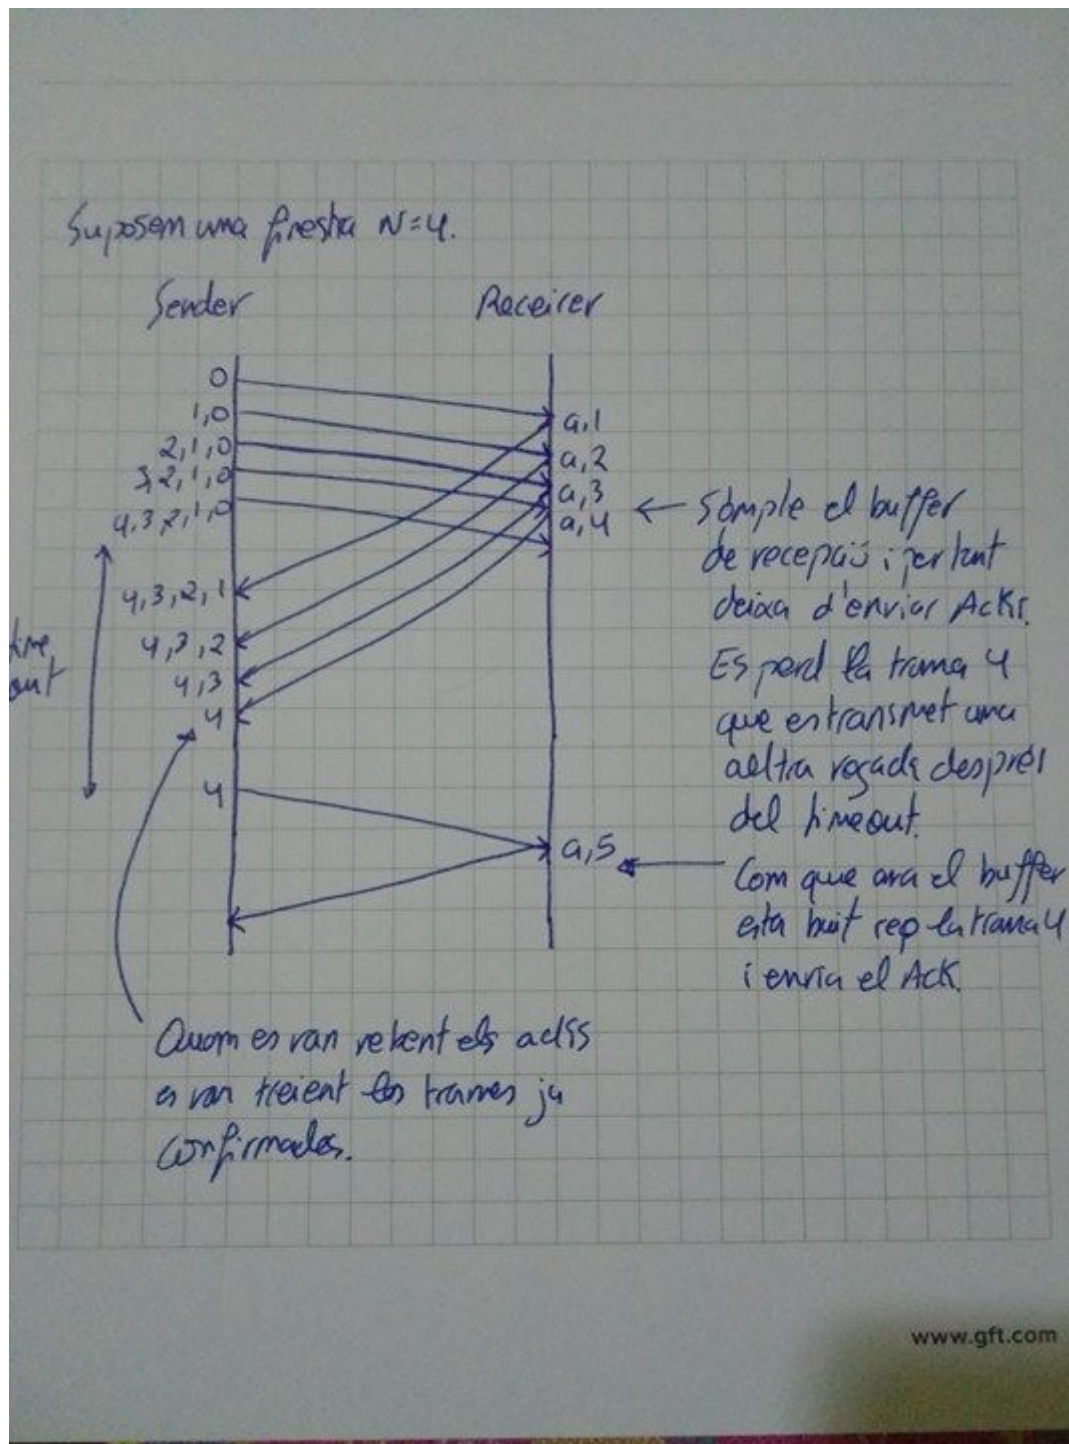 Suposem una finestra N=4.
Sender
Receicer
0
1,0
2,1,0
3,2,1,0
4,3,2,1,0
a,1
a,2
a,3
a,4
4,3,2,1
4,3,2
4,3
4
time
out
4
a,5
S'omple el buffer
de recepció i per tant
deixa d'enviar Acks.
Es perd la trama 4
que es transmet una
altra vegada després
del timeout.
Com que ara el buffer
esta buit rep la trama 4
i envia el Ack.
Quom es van rebent els acks
es van treient les trames ja
confirmades.
www.gft.com